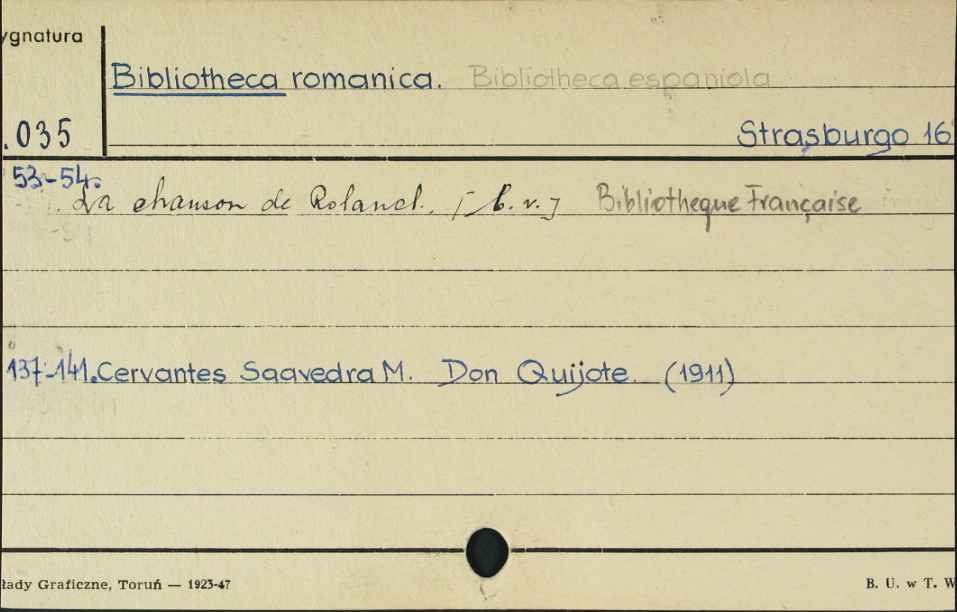 ygnatura
Bibliotheca romanica. Bibliotheca espaniola
.035
Strasburgo 16
53-54.
La chanson de Roland. [b. r.] Bibliotheque Française
137-141. Cervantes Saavedra M. Don Quijote. (1911)
łady Graficzne, Toruń — 1923-47
B. U. w T. W